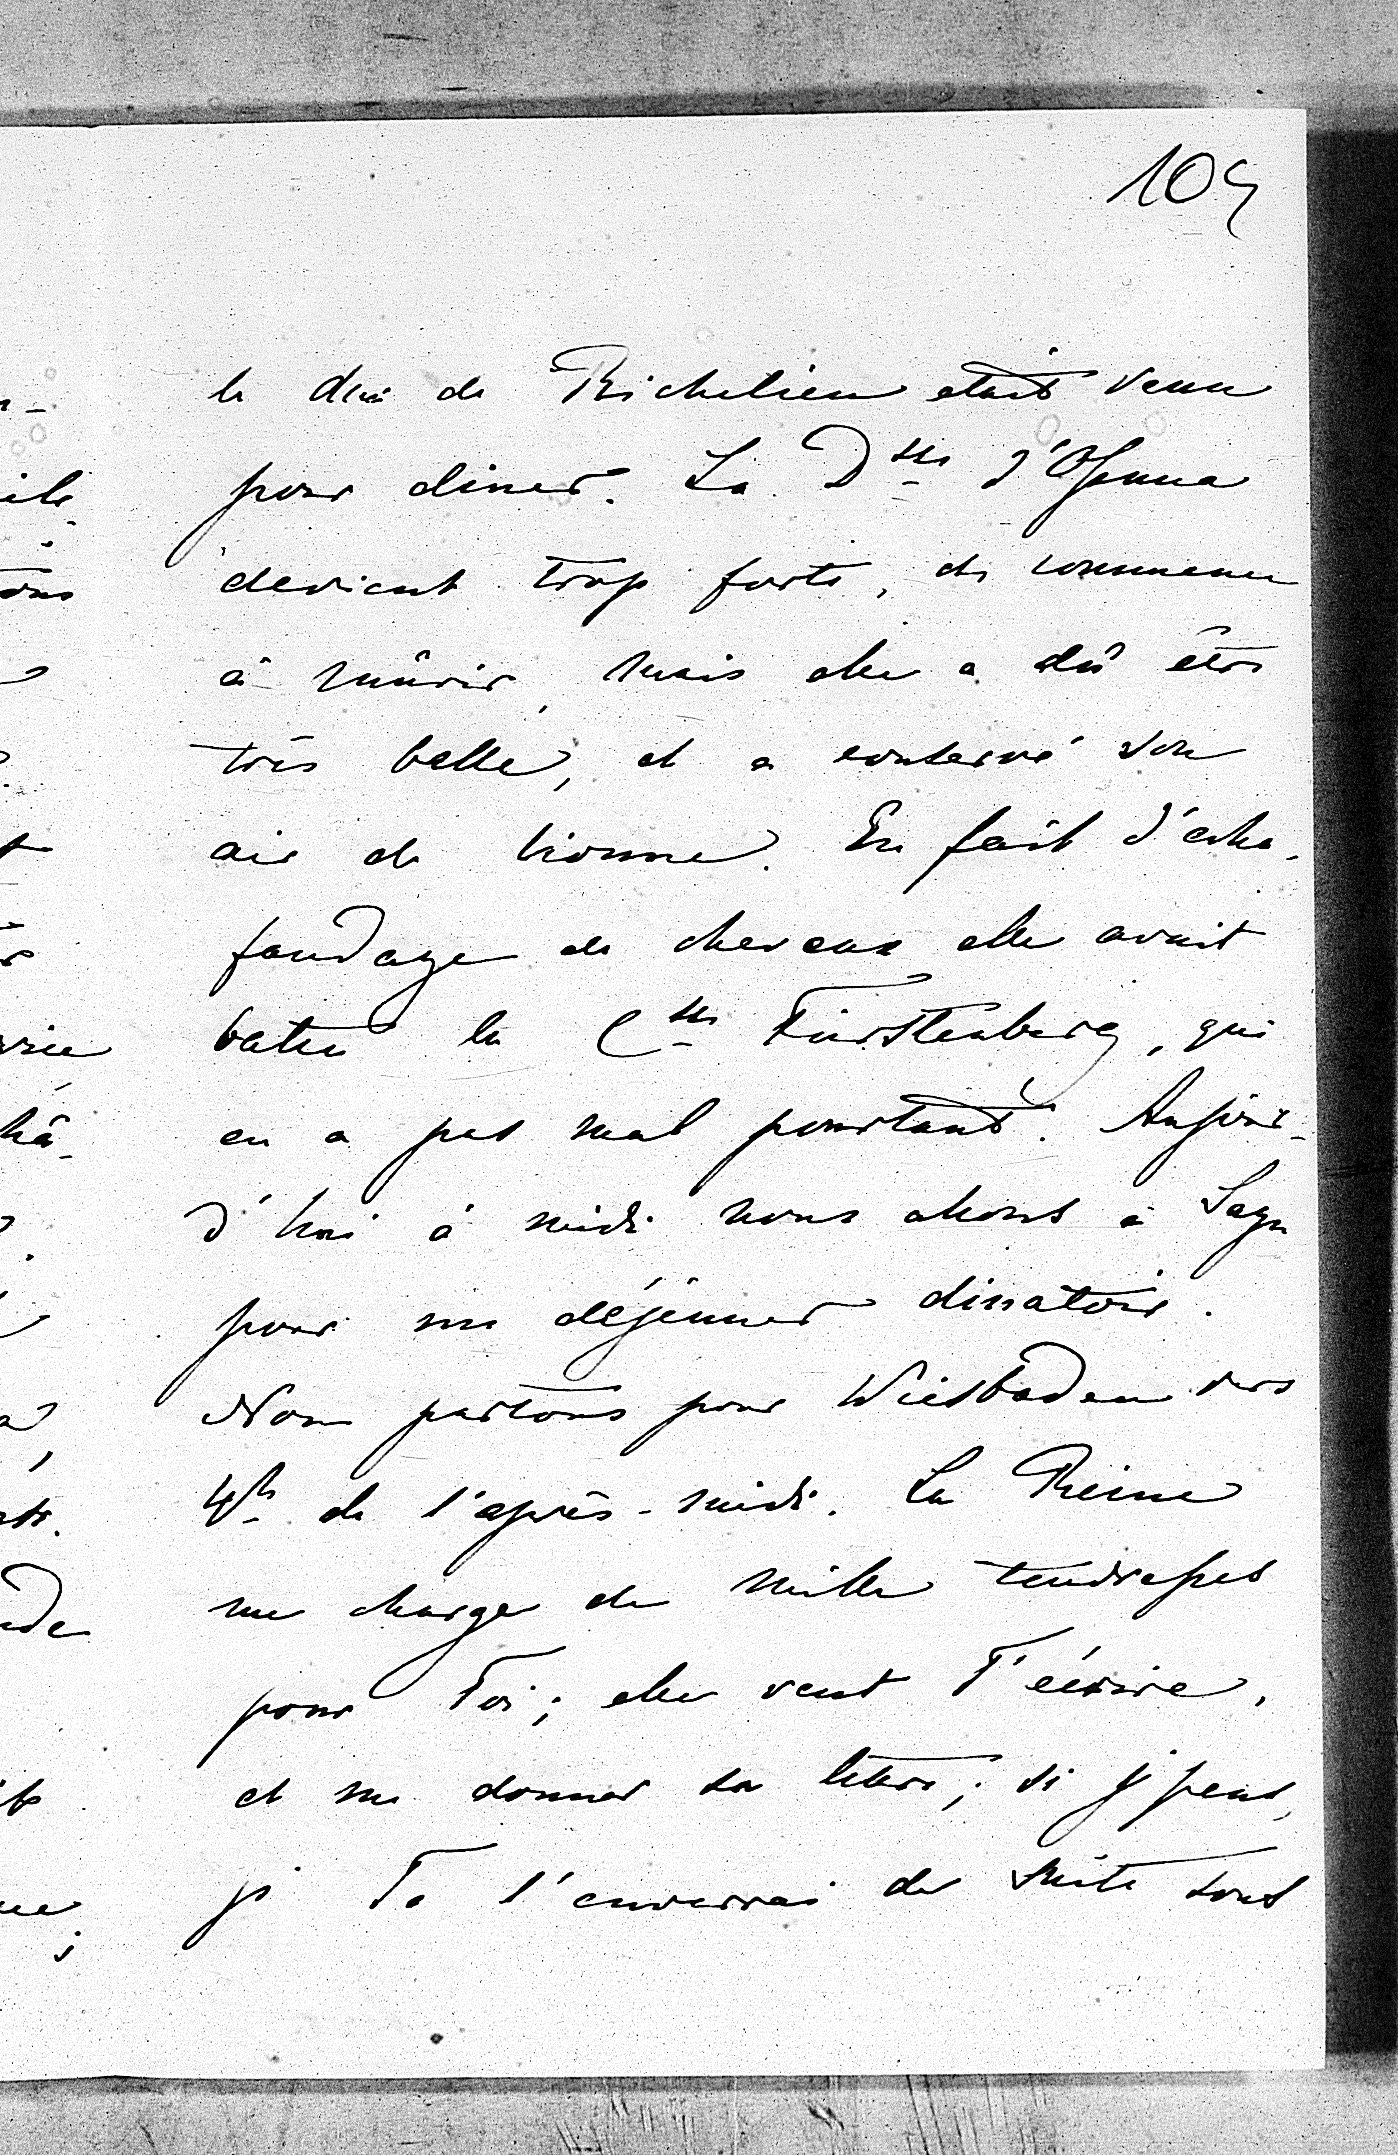 109
le duc de Richelieu etait venu
pour diner. La Dsse d'Ossuna
devient trop forte, et commence
à mûrir, mais elle a dû être
très belle, et a conservé son
air de lionne. En fait d'echa-
faudage de cheveux elle avait
batu la Csse Fürstenberg, qui
en a pas mal pourtant. Aujour-
d'hui à midi nous allons à Sayn
pour un déjeuner dinatoir.
Nous partons pour Wiesbaden vers
4h de l'après-midi. La Reine
me charge de mille tendresses
pour Toi; elle veut T'écrire,
et me donner sa lettre; si j'peus,
je Te l'enverrai de suite sous